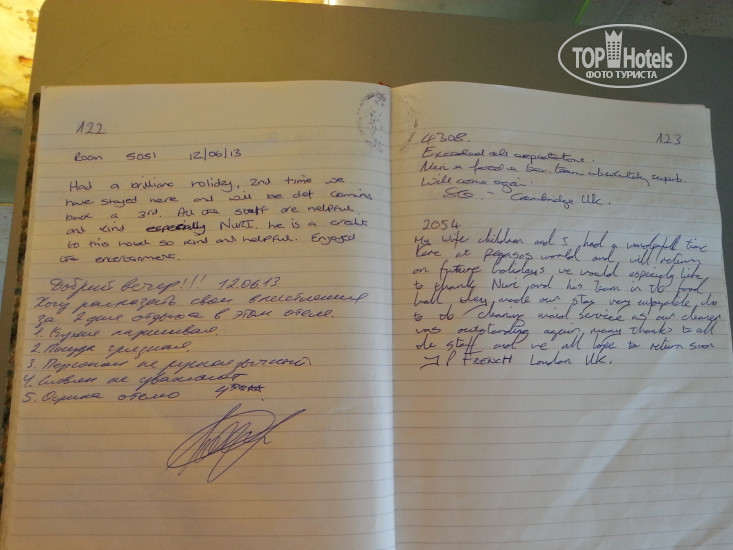 TOP Hotels
ФОТО ТУРИСТА
122
Room 5051 12/06/13
Had a brilliant holiday, 2nd time we
have stayed here and will be def coming
back a 3rd. All the staff are helpful
and kind especially NURI. He is a credit
to this hotel so kind and helpful. Enjoyed
the entertainment.
Добрий вечер!!! 12.06.13
Хочу рассказать свои впечатления
за 2 дня отдыха в этом отеле.
1. Кухня паршивая.
2. Посуда грязная.
3. Персонал не русскоязычный
4. Славян не уважают
5. Оценка отелю
123
4308.
Exceeded all expectations.
Nuri & food & bar team absolutely superb
Will come again.
Cambridge UK.
2054
My wife children and I had a wonderfull time
here at pegasos world and will return
on future holidays we would especialy like
to thank Nuri and his team in the food
hall they made our stay very enjoyable, also
to the cleaning maid service as our cleaner
was outstanding again many thanks to all
the staff and we all hope to return soon
J P FRENCH London UK.